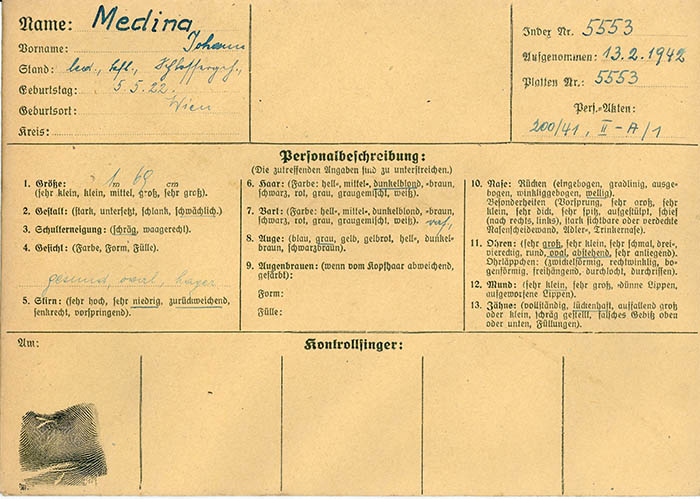 Name: Medina
Vorname: Johann
Stand: led., kfl., Schlossergeh.,
Geburtstag: 5.5.22.
Geburtsort: Wien
Kreis:
Index Nr. 5553
Aufgenommen: 13.2.1942
Platten Nr.: 5553
Pers.-Akten:
200/41, II-A/1
Personalbeschreibung:
(Die zutreffenden Angaben sind zu unterstreichen.)
1. Größe: 1m 69 cm
(sehr klein, klein, mittel, groß, sehr groß).
2. Gestalt: (stark, untersetzt, schlank, schwächlich.)
3. Schulterneigung: (schräg, waagerecht).
4. Gesicht: (Farbe, Form, Fülle).
gesund, oval, hager
5. Stirn: (sehr hoch, sehr niedrig, zurückweichend,
senkrecht, vorspringend).
6. Haar: (Farbe: hell-, mittel-, dunkelblond, -braun,
schwarz, rot, grau, graugemischt, weiß).
7. Bart: (Farbe: hell-, mittel-, dunkelblond, -braun,
schwarz, rot, grau, graugemischt, weiß).
8. Auge: (blau, grau, gelb, gelbrot, hell-, dunkel-
braun, schwarzbraun).
9. Augenbrauen: (wenn vom Kopfhaar abweichend,
gefärbt):
Form:
Fülle:
10. Nase: Rücken (eingebogen, gradlinig, ausge-
bogen, winkliggebogen, wellig).
Besonderheiten (Vorsprung, sehr groß, sehr
klein, sehr dick, sehr spitz, aufgestülpt, schief
(nach rechts, links), stark sichtbare oder verdeckte
Nasenscheidewand, Adler-, Trinkernase).
11. Ohren: (sehr groß, sehr klein, sehr schmal, drei-,
viereckig, rund, oval, abstehend, sehr anliegend).
Ohrläppchen: (zwickelförmig, rechtwinklig, bo-
genförmig, freihängend, durchlocht, durchrissen).
12. Mund: (sehr klein, sehr groß, dünne Lippen,
aufgeworfene Lippen).
13. Zähne: (vollständig, lückenhaft, auffallend groß
oder klein, schräg gestellt, falsches Gebiß oben
oder unten, Füllungen).
Am:
Kontrollfinger: